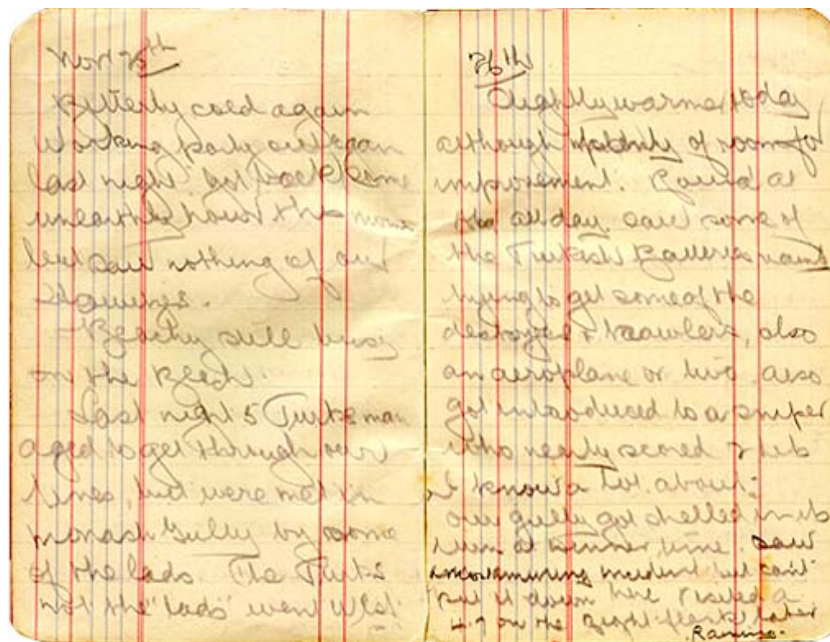 Nov 25th
Bitterly cold again
Working party out again
last night. Got back some
unearthly hour this morn
but saw nothing of our
Beachy still busy
on the Beach.
Last night 5 Turks man
aged to get through our
lines, but were met in
Monash Gully by some
of the lads. The Turks
not the "lads" went West.
26th
Slightly warmer today
although plenty of room for
improvement.
all day saw some of
the Turkish Batteries
trying to get some of the
destroyers & trawlers, also
an aeroplane or two also
got introduced to a sniper
who nearly scored
I know a lot about:
our gully got shelled in its
turn at dinner time. saw
incident but can't
put it down here Visited a
on the flank later